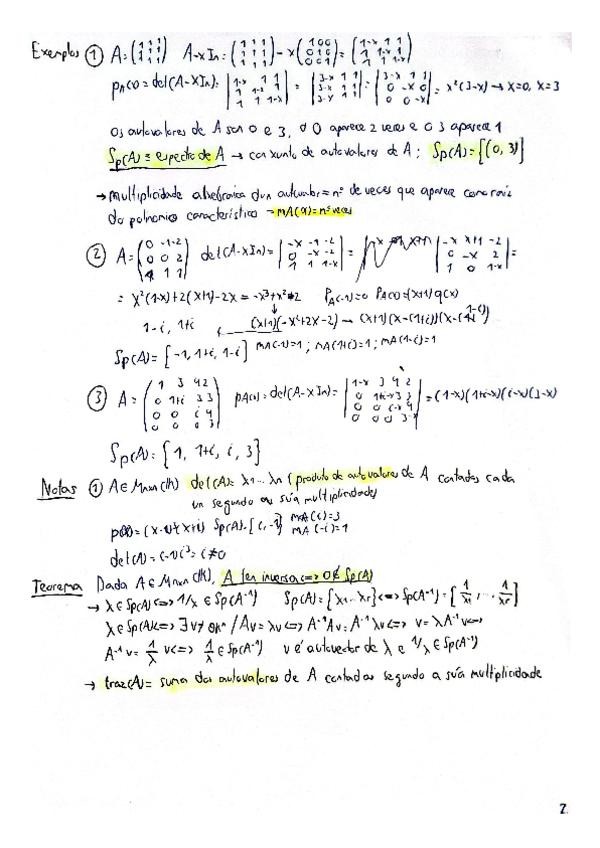 Exemplos ① A = (1 1 1 / 1 1 1 / 1 1 1) A-xIn = (1 1 1 / 1 1 1 / 1 1 1) - x(1 0 0 / 0 1 0 / 0 0 1) = (1-x 1 1 / 1 1-x 1 / 1 1 1-x)
pA(x) = det(A-xIn) = |1-x 1 1 / 1 1-x 1 / 1 1 1-x| = |3-x 1 1 / 3-x 1-x 1 / 3-x 1 1-x| = |3-x 1 1 / 0 -x 0 / 0 0 -x| = x²(3-x) → x=0, x=3
Os autovalores de A son 0 e 3, o 0 aparece 2 veces e o 3 aparece 1
Sp(A) ≡ espectro de A → conxunto de autovalores de A; Sp(A) = {(0, 3)}
→ multiplicidade alxebraica dun autovalor = nº de veces que aparece como raíz
do polinomio característico → mA(α) = nº veces
② A = (0 -1 -2 / 0 0 2 / 1 1 1) det(A-xIn) = |-x -1 -2 / 0 -x 2 / 1 1 1-x| = |-x x+1 -2 / 0 -x 2 / 1 0 1-x| =
= x²(1-x)+2(x+1)-2x = -x³+x²+2 PA(-1)=0 PA(x)=(x+1)q(x)
1-i, 1+i (x+1)(-x²+2x-2) → (x+1)(x-(1+i))(x-(1-i))
Sp(A) = {-1, 1+i, 1-i} mA(-1)=1; mA(1+i)=1; mA(1-i)=1
③ A = (1 3 4 2 / 0 1+i 3 3 / 0 0 i 4 / 0 0 0 3) pA(x) = det(A-xIn) = |1-x 3 4 2 / 0 1+i-x 3 3 / 0 0 i-x 4 / 0 0 0 3-x| = (1-x)(1+i-x)(i-x)(3-x)
Sp(A) = {1, 1+i, i, 3}
Notas ① A ∈ Mnxn(K) det(A) = λ1...λn (produto de autovalores de A contados cada
un segundo a súa multiplicidade)
p(x) = (x-i)³(x+i) Sp(A) = {i, -i} mA(i)=3 mA(-i)=1
det(A) = (-i)i³ = i ≠ 0
Teorema Dada A ∈ Mnxn(K), A ten inversa ⟺ 0 ∉ Sp(A)
→ λ ∈ Sp(A) ⟺ 1/λ ∈ Sp(A⁻¹) Sp(A) = {λ1...λr} ⟺ Sp(A⁻¹) = {1/λ1, ..., 1/λr}
λ ∈ Sp(A) ⟺ ∃ v ≠ 0Kⁿ / Av = λv ⟺ A⁻¹Av = A⁻¹λv ⟺ v = λA⁻¹v ⟺
A⁻¹v = 1/λ v ⟺ 1/λ ∈ Sp(A⁻¹) v é autovector de λ e 1/λ ∈ Sp(A⁻¹)
→ traz(A) = suma dos autovalores de A contados segundo a súa multiplicidade
2